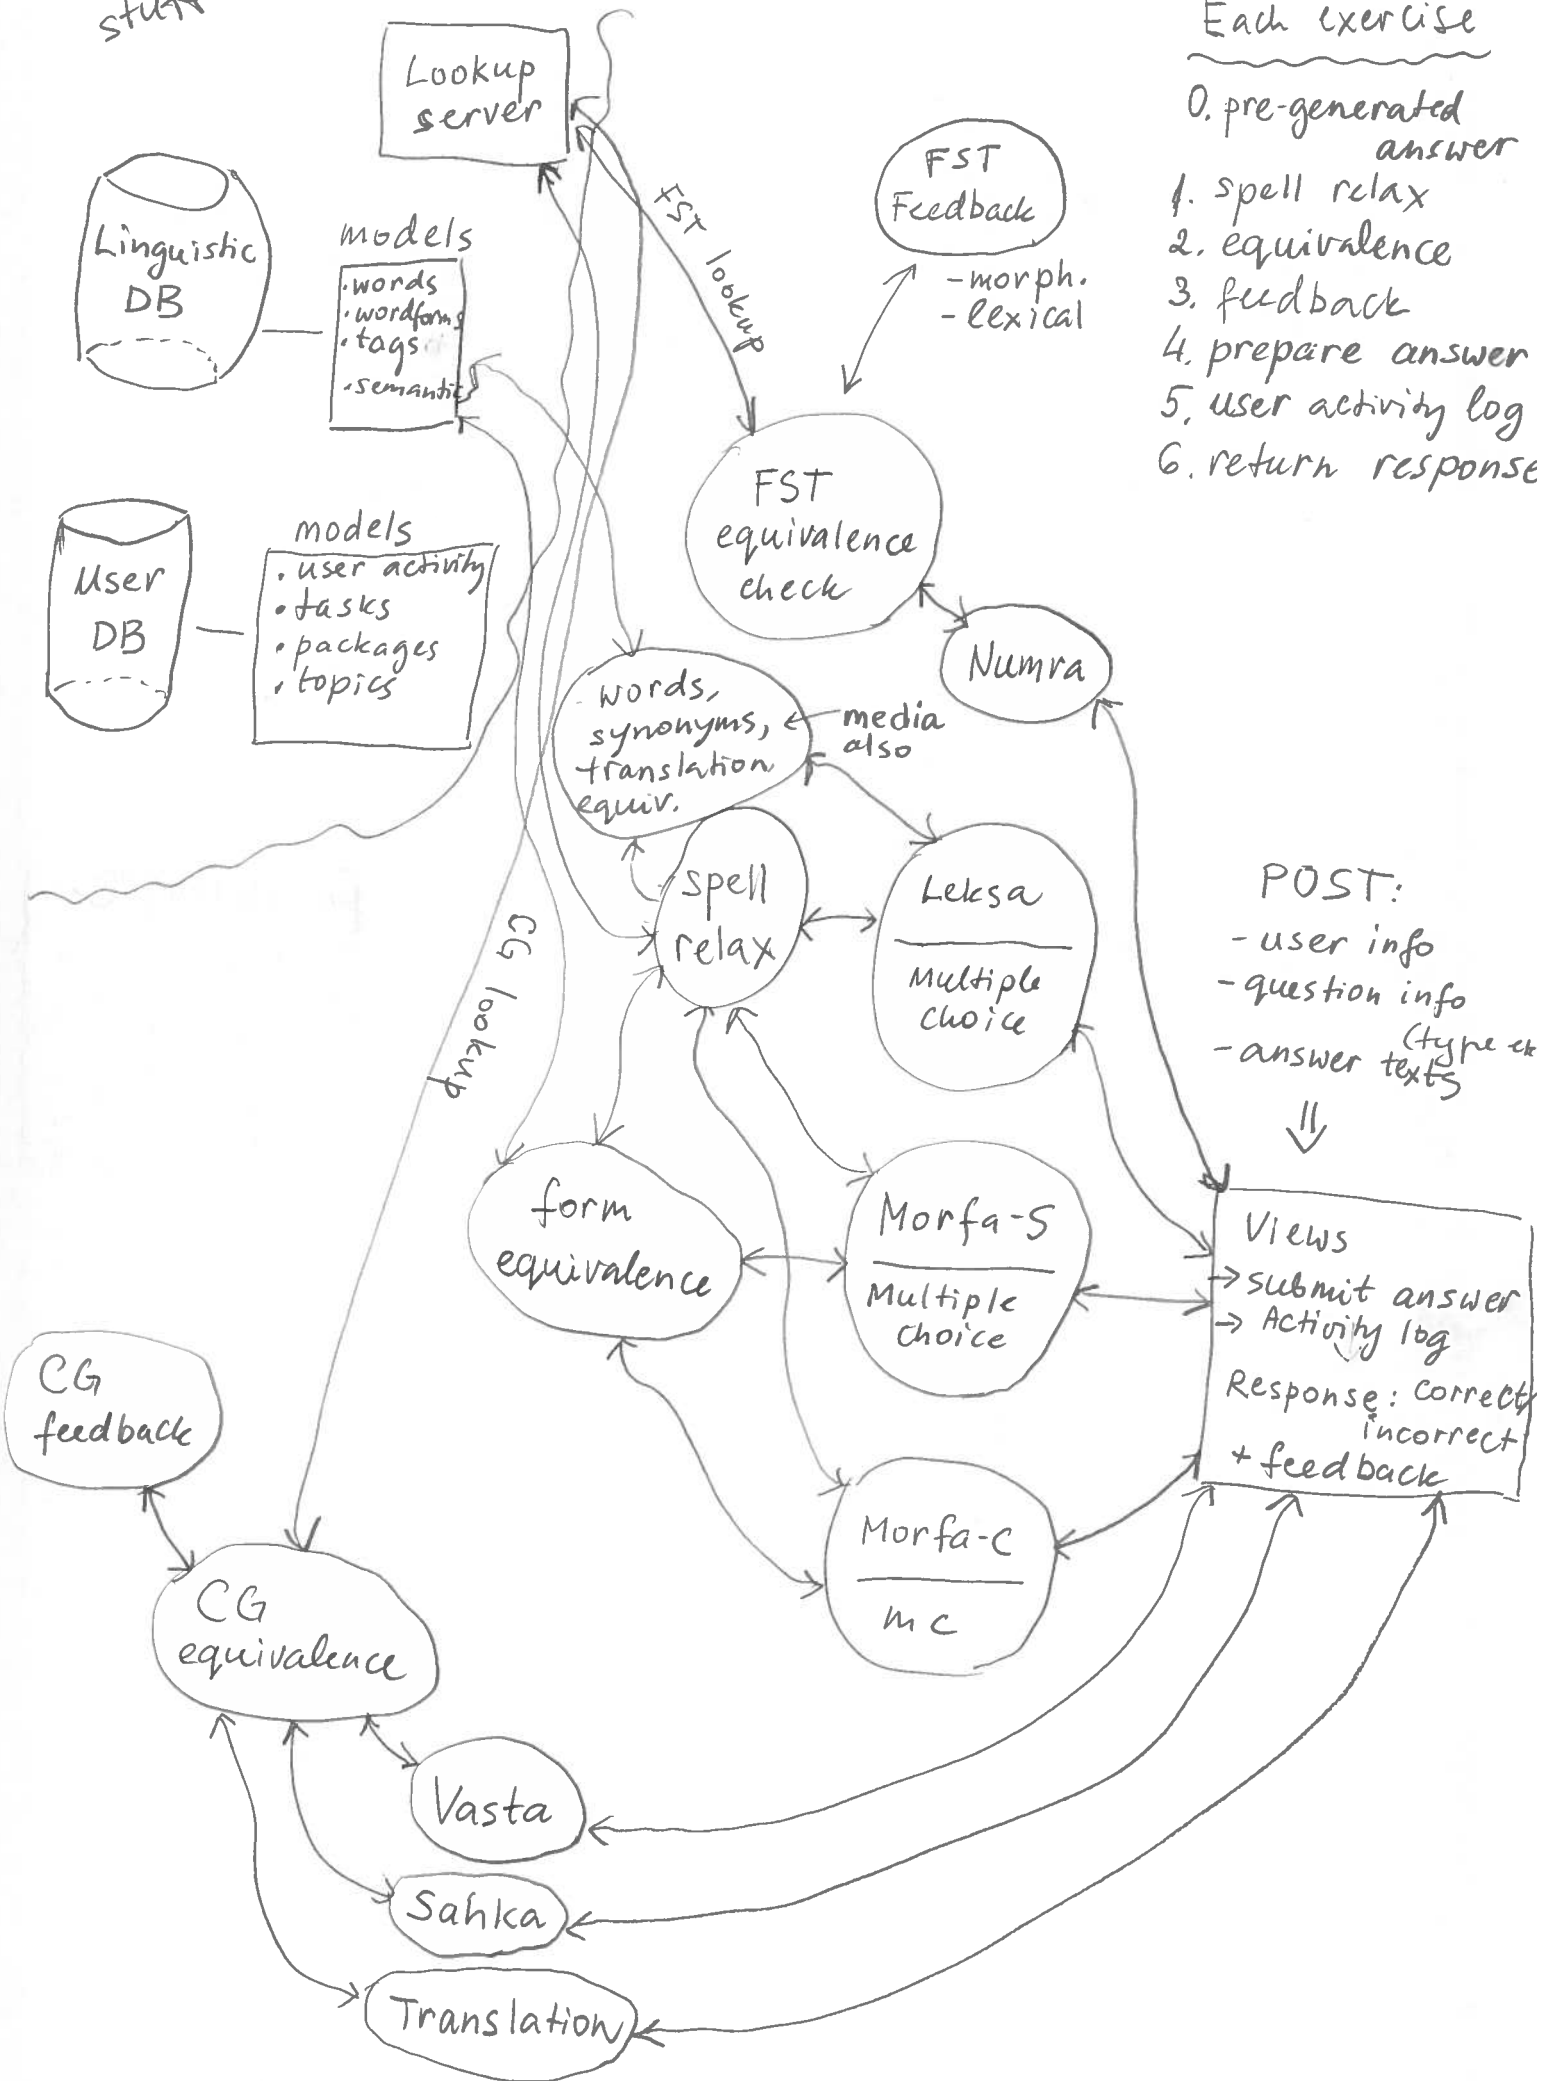 stuff
Lookup
server
Each exercise
0. pre-generated
answer
1. spell relax
2. equivalence
3. feedback
4. prepare answer
5. user activity log
6. return response
FST
Feedback
- morph.
- lexical
Linguistic
DB
models
· words
· wordforms
· tags
· semantic
FST lookup
FST
equivalence
check
User
DB
models
· user activity
· tasks
· packages
· topics
Numra
words,
synonyms,
translation
equiv.
media
also
spell
relax
Leksa
Multiple
choice
CG lookup
POST:
- user info
- question info
(type
- answer texts
form
equivalence
Morfa-S
Multiple
choice
Views
→ submit answer
→ Activity log
Response: correct/
incorrect
+ feedback
CG
feedback
Morfa-C
mc
CG
equivalence
Vasta
Sahka
Translation